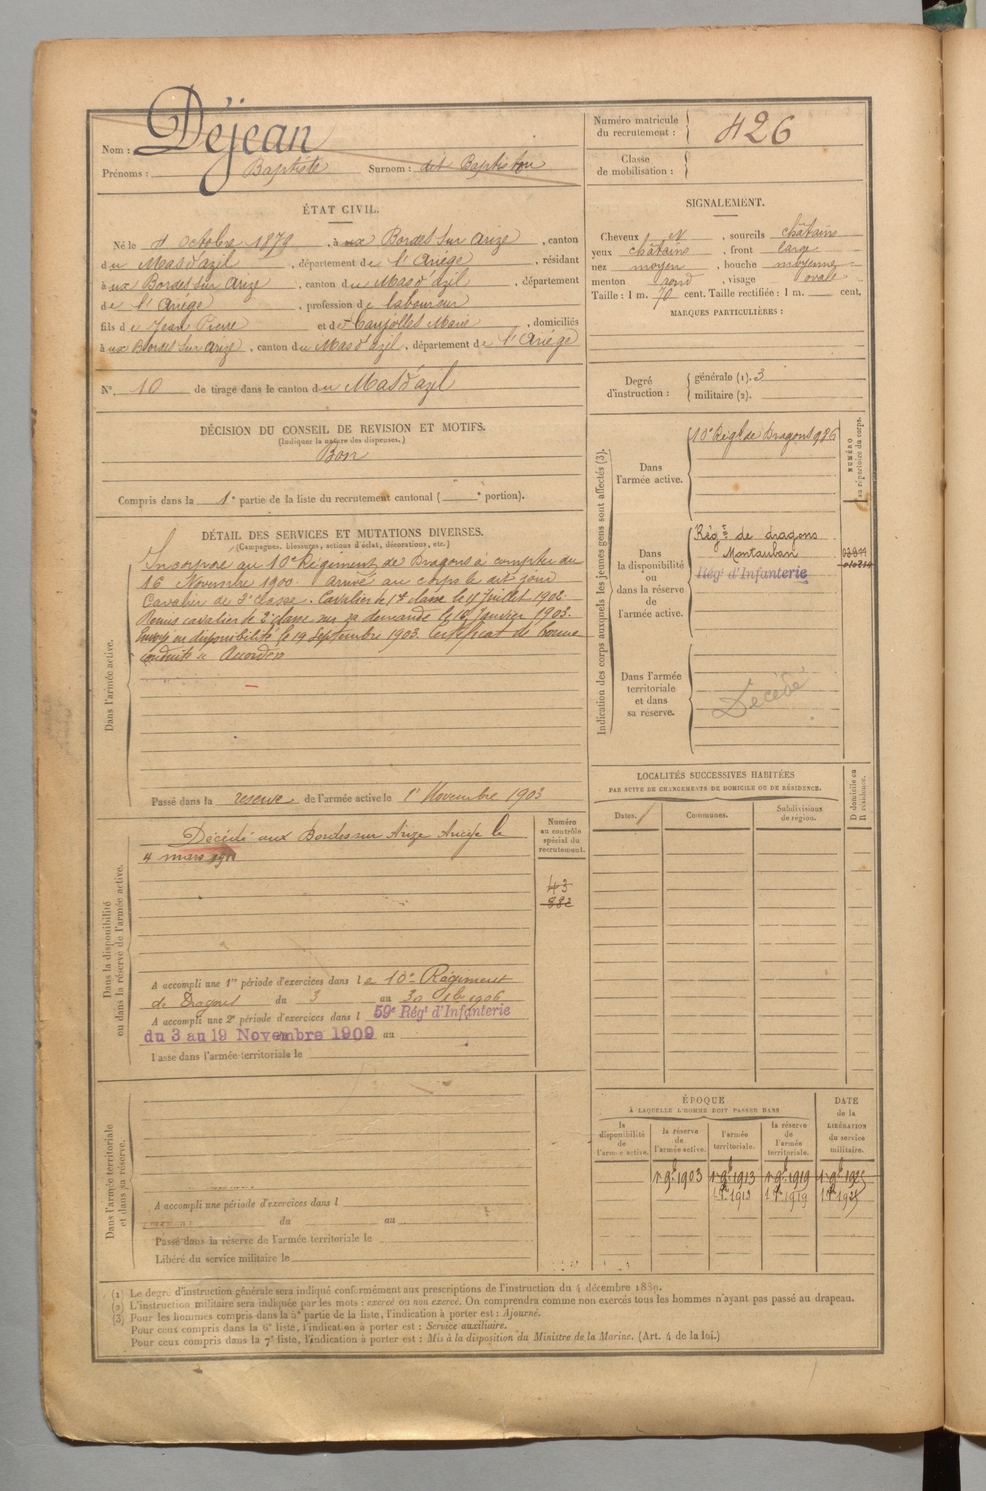 Nom : Déjean
Prénoms : Baptiste Surnom : dit Baptiston
ÉTAT CIVIL.
Né le 4 Octobre 1879, à ux Bordes sur Arize, canton
du Mas d'azil, département de l'Ariège, résidant
à ux Bordes sur Arize, canton du Mas d'azil, département
de l'Ariège, profession de laboureur
fils de Jean Pierre et de Caujolles Marie, domiciliés
à ux Bordes sur Arize, canton du Mas d'azil, département de l'Ariège
N° 10 de tirage dans le canton du Mas d'azil
DÉCISION DU CONSEIL DE REVISION ET MOTIFS.
(Indiquer la nature des dispenses.)
Bon
Compris dans la 1e partie de la liste du recrutement cantonal ( e portion).
DÉTAIL DES SERVICES ET MUTATIONS DIVERSES.
(Campagnes, blessures, actions d'éclat, décorations, etc.)
Dans l'armée active.
Incorporé au 10e Régiment de Dragons à compter du
16 Novembre 1900. arrivé au corps le dit jour
Cavalier de 2e classe. Cavalier de 1e classe le 4 Juillet 1902.
Remis cavalier de 2e classe sur sa demande le Janvier 1903.
Envoyé en disponibilité le 19 Septembre 1903. Certificat de bonne
conduite Accordé
Passé dans la reserve de l'armée active le 1er Novembre 1903
Dans la disponibilité
ou dans la réserve de l'armée active.
Décédé aux Bordes sur Arize Ariège le
4 mars
Numéro
au contrôle
spécial du
recrutement.
43
882
A accompli une 1re période d'exercices dans le 10e Régiment
de Dragons du 3 au 30 1906
A accompli une 2e période d'exercices dans l 59e Régt d'Infanterie
du 3 au 19 Novembre 1909 au
Passé dans l'armée territoriale le
Dans l'armée territoriale
et dans sa réserve.
A accompli une période d'exercices dans l
du au
Passé dans la réserve de l'armée territoriale le
Libéré du service militaire le
Numéro matricule
du recrutement : 426
Classe
de mobilisation :
SIGNALEMENT.
Cheveux N, sourcils châtains
yeux châtains, front large
nez moyen, bouche moyenne
menton rond, visage ovale
Taille : 1 m. 70 cent. Taille rectifiée : 1 m. cent.
MARQUES PARTICULIÈRES :
Degré
d'instruction :
générale (1). 3
militaire (2).
Indication des corps auxquels les jeunes gens sont affectés (3).
NUMÉRO
au répertoire du corps.
Dans
l'armée active.
10e Régt de Dragons 986
Dans
la disponibilité
ou
dans la réserve
de
l'armée active.
Régt de dragons
Montauban
Régt d'Infanterie
Dans l'armée
territoriale
et dans
sa réserve.
Décédé
LOCALITÉS SUCCESSIVES HABITÉES
PAR SUITE DE CHANGEMENTS DE DOMICILE OU DE RÉSIDENCE.
Dates. Communes. Subdivisions
de région.
D domicile ou
R résidence.
ÉPOQUE
À LAQUELLE L'HOMME DOIT PASSER DANS
DATE
de la
LIBÉRATION
du service
militaire.
la
disponibilité
de
l'armée active.
la réserve
de
l'armée active.
l'armée
territoriale.
la réserve
de
l'armée
territoriale.
1r 9b 1903 1r 9b 1913 1r 9b 1919 1r 9b 1925
1913 1919
(1) Le degré d'instruction générale sera indiqué conformément aux prescriptions de l'instruction du 4 décembre 1889.
(2) L'instruction militaire sera indiquée par les mots : exercé ou non exercé. On comprendra comme non exercés tous les hommes n'ayant pas passé au drapeau.
(3) Pour les hommes compris dans la 5e partie de la liste, l'indication à porter est : Ajourné.
Pour ceux compris dans la 6e liste, l'indication à porter est : Service auxiliaire.
Pour ceux compris dans la 7e liste, l'indication à porter est : Mis à la disposition du Ministre de la Marine. (Art. 4 de la loi.)